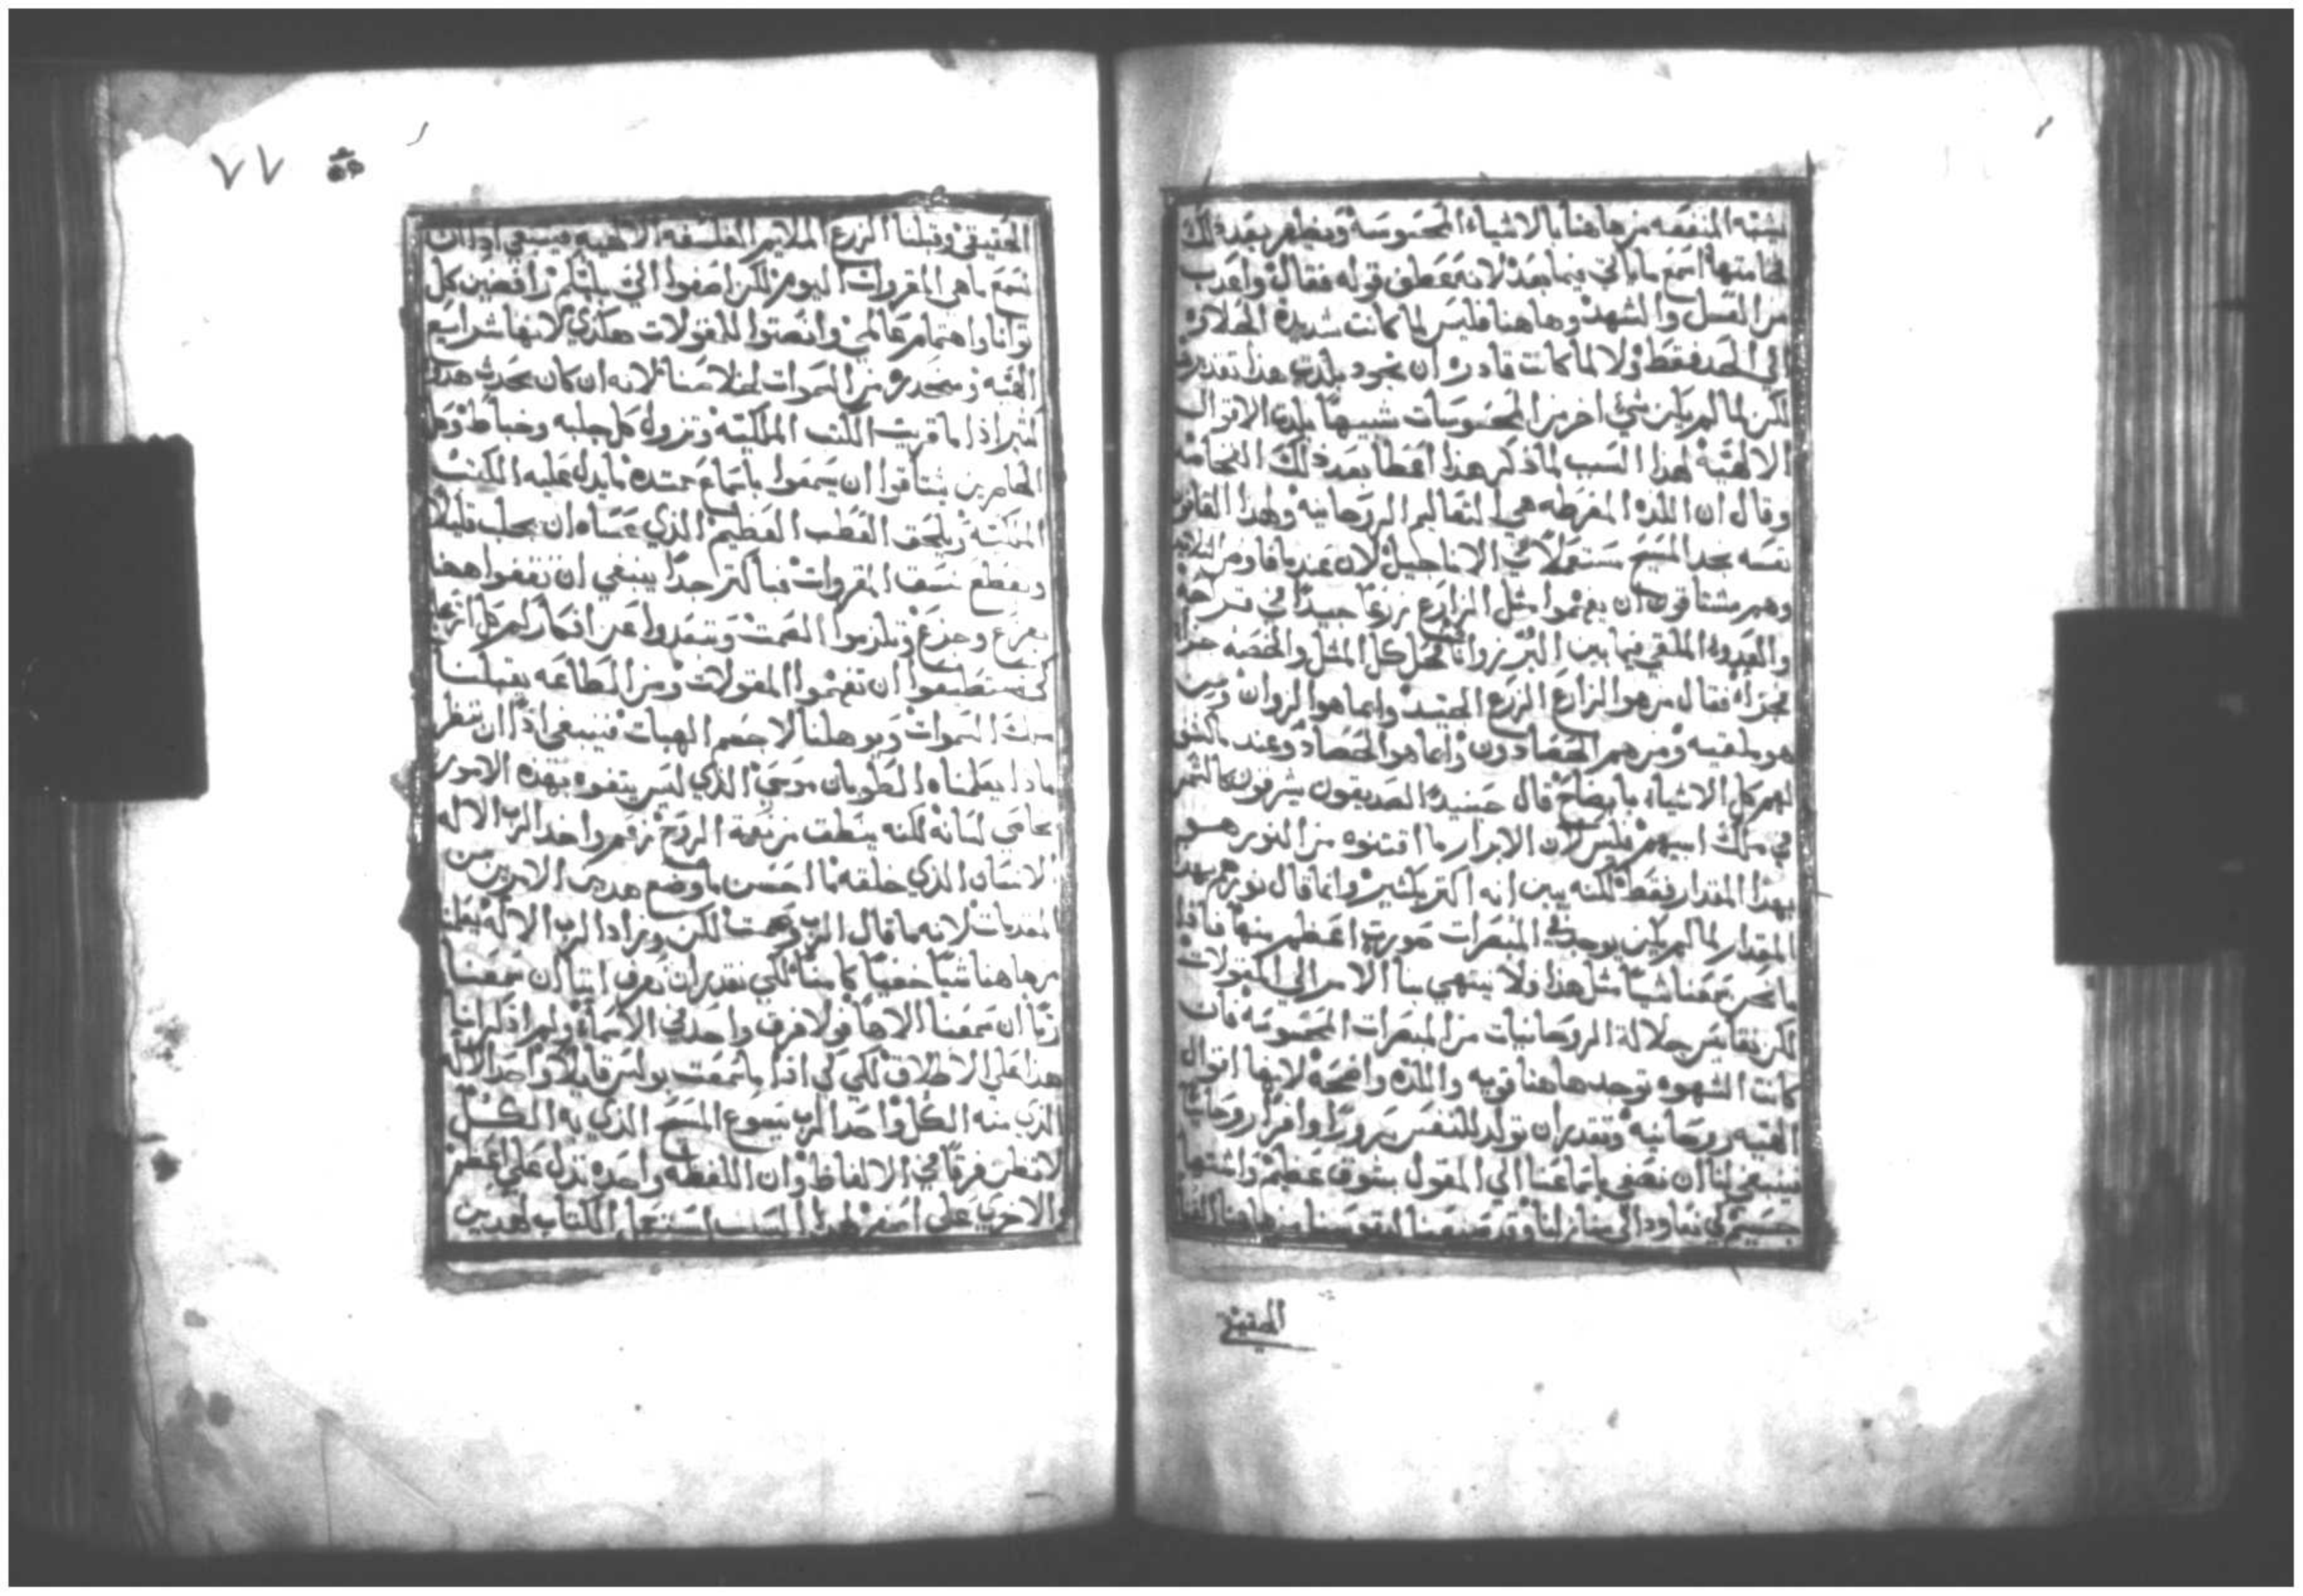 يشبه المنفعه من هاهنا بالاشياء المحسوسة ويظهر بعد ذلك
فخامتها اسمع ماياتي فيما بعد لانه عطف قوله فقال واعدب
من العسل والشهد وهاهنا فليس لما كانت شديدة الحلاوه
الى الحد فقط ولا لما كانت قادره ان تجود بلدت هدا تقديرها
لكن لما لم يكن شي اخر من المحسوسات شبيهاً بلدت الاقوال
الالهيه لهذا السبب لما ذكر هذا اعطا بعد ذلك الفخامه
وقال ان اللذه المفرطه هي التعاليم الروحانيه ولهذا القانون
نفسه نجد المسيح مستعملاً في الاناجيل لان عندما فاوض التلاميد
وهم مشتاقون ان يفهموا مثل الزارع زرعاً جيداً في قراحه
والعدو الملقي فيما بين البُر زواناً فحل كل المثل والخصه جزاً
فجزاً فقال من هو الزارع الزرع الجيد وايما هو الزوان ومن
هو ملقيه ومن هم الحصادون وايما هو الحصاد وعند ماكشف
لهم كل الاشياء بايضاح قال حينيدٍ الصديقون يشرقون كالشمس
في ملك ابيهم فليس لان الابرار ما اقتنوه من النور هو
بهذا المقدار فقط لكنه يبين انه اكتر بكثير وانما قال نورهم بهذا
المقدار لما لم يكن يوجد في المبصرات صورت اعظم منها فاذا
ما نحن سمعنا شياً مثل هذا فلا ينتهي بنا الامر الي المقولات
لكن نقايس جلالة الروحانيات من المبصرات المحسوسه فان
كانت الشهوه توجد هاهنا قويه واللذه واضحه لانها اقوال
الهيه روحانيه وتقدر ان تولد للنفس سروراً وافراً روحانياً
فينبغي لنا ان نصغي باسماعنا الي المقول بشوق عظيم واشتها
جسيم لكي نعاود الى منازلنا وقد
المقيز
٧٧
الحقيقي وقبلنا الزرع الملايم الفلسفه الالهيه فينبغي اذاً ان
نسمع ما هي المقروات اليوم لكن اصغوا الي بلبكم رافضين كل
توانا واهتمام عالمي وانصتوا للمقولات هكذي لانها شرايع
الهيه ومنحدره من السموات لخلاصنا لانه ان كان يحدث هدوا
كتير اذا ما قريت الكتب الملكيه وتزول كل جلبه وخباط وكل
الحاضرين يشتاقوا ان يسمعوا باسماع ممتده ما يدل عليه المكتب
الملكيه ويلحق العطب العظيم الذي عساه ان يجلب قليلاً
ويقطع نسق المقروات فباكتر جداً ينبغي ان تقفوا ههنا
بفزع وجزع وتلزموا الصمت وتبعدوا عن افكاركم كل انزعاج
لكي تستطيعوا ان تفهموا المقولات ومن الطاعه يقبلنا
ملك السموات ويوهلنا لاجسم الهبات فينبغي اذاً ان ننظر
ماذا يعلمناه الطوبان موسى الذي ليس يتفوه بهذه الامور
بخاصي لسانه لكنه ينطق من نعمة الروح زعم واخذ الرب الاله
الانسان الذي خلقه ما احسن ما وضع هدين الامرين من
المقدمات لانه ما قال الرب وصمت لكن وزاد الرب الاله يعلمنا
من هاهنا شياً خفياً كامناً لكي نقدر ان نعرف ايتما ان سمعنا
رباً ان سمعنا الاهاً فلا فرق واحد في الاسماء ولم اذكر انا
هذا على الاطلاق لكي اذا ما سمعت بولس قايلاً واحد الاله
الذي منه الكل وواحد الرب يسوع المسيح الذي به الكل
لا تظن فرقاً في الالفاظ وان اللفظه واحده تدل على اعظم
والاخرى على اصغر لهذا السبب استعمل الكتاب لهدين